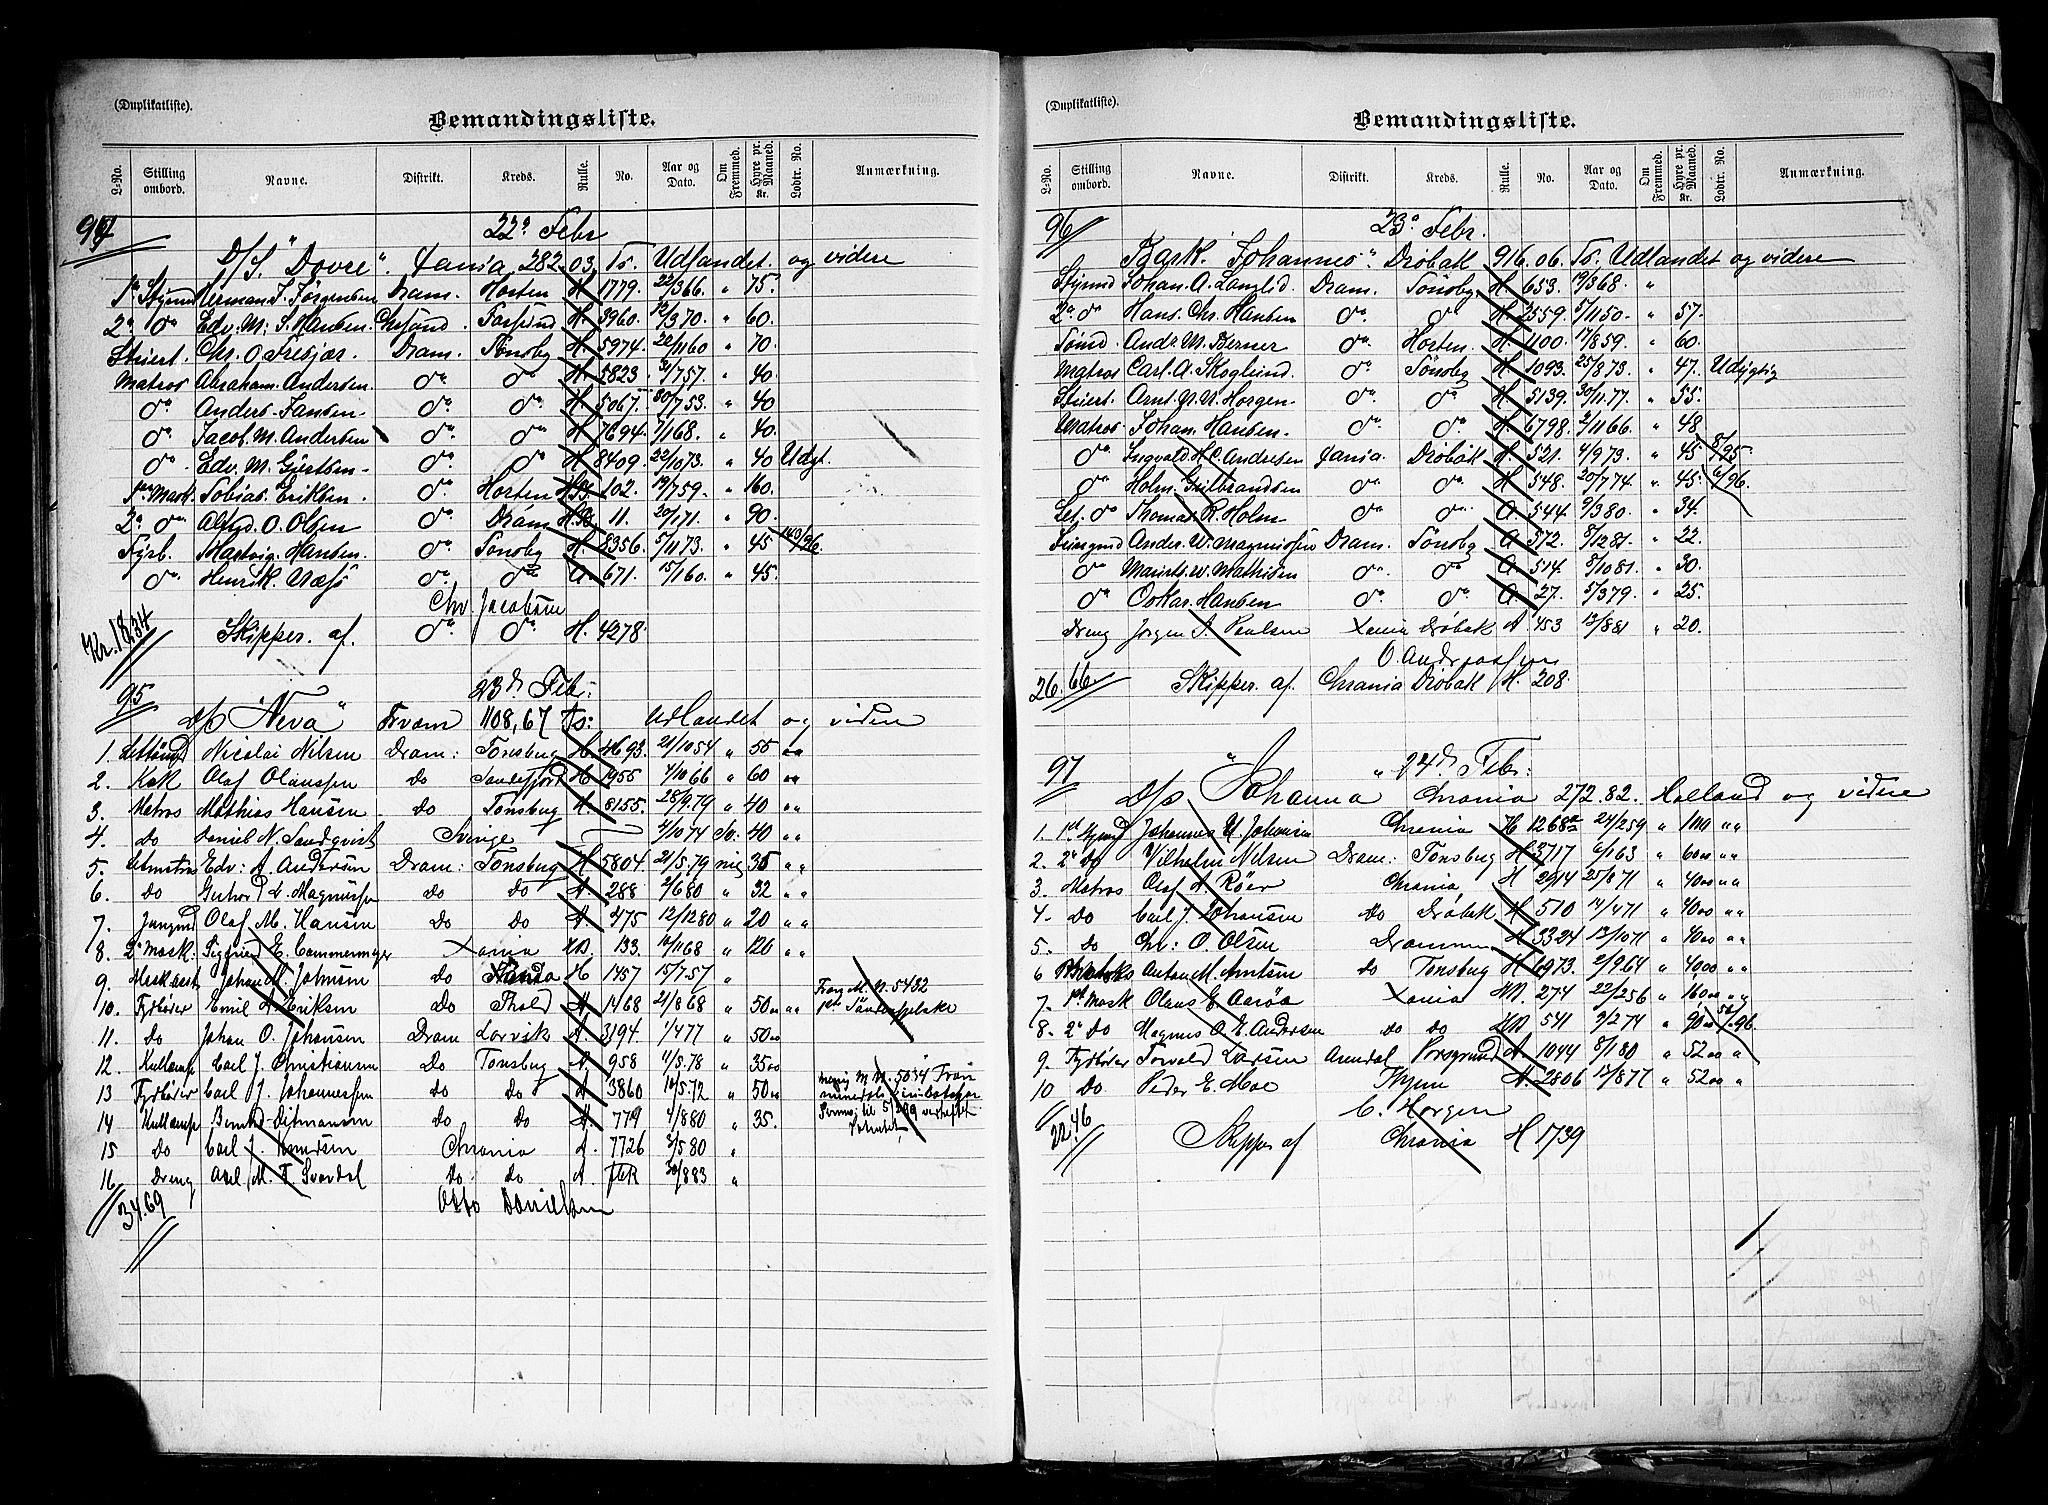 (Duplikatliste).
Bemandingsliste.
L-No. Stilling ombord. Navne. Distrikt. Kreds. Rulle. No. Aar og Dato. Om Fremmed. Hyre pr. Maaned. Kr. Lodtr. No. Anmærkning.
94 22de Febr
D/S. "Dovre". Xania 282.03. Ts. Udlandet. og videre
1ste Styrmd Herman. J. Jørgensen Dram. Horten H 1779. 22/3 66. " 75.
2n do Edv. M. S. Hansen. Chrsand. H. 3960. 12/3 70. " 60.
Stuert. Chr. O. Dram. Tönsby H. 5974. 22/11 60 " 70.
Matros Abraham. Andersen do do H. 5823. 31/7 57. " 40.
do Anders. Jansen. do. do. H. 5067. 30/7 53. " 40
do. Jacob. M. Andersen do. do H. 7694. 7/1 68. " 40.
do. Edv. M. Giertsen. do. do H. 8409. 22/10 73. " 40 Udgt.
1ste Mask. Tobias. Eriksen. do. Horten 102. 19/7 59. " 160.
2n do Alfred. O. Olsen do. Dram 11. 20/1 71. " 90.
Fyrb. Hartvig. Hansen. do. Tönsby H. 8356. 5/11 73. " 45 140/96.
do. Henrik. Næss do. do A. 671. 15/1 60. " 45.
Chr. Jacobsen
Kr. 18.34 Skipper. af. do. do. H. 4278.
95 23de Feb:
D/S "Neva" Tvam 1108,67 Ts: Udlandet og videre
1. Nicolai Nilsen Dram: Tonsberg H 4693. 21/10 54 " 55 "
2. Kok Olaf Olaussen do Sandefjord H 1955 4/10 66 " 60 "
3. Matros Mathias Hansen do Tonsberg H. 8155. 28/9 79 " 40 "
4. do Daniel N. Sandqvist Sverige 4/10 74 Sv. 40 "
5. Edv: A. Andersen Dram: Tonsberg H 5804. 21/5 79 35 "
6. do L. Magnussen do do A. 288 2/6 80 " 32 "
7. Jungmd Olaf M. Hansen do do A. 475 12/12 80 " 20 "
8. 2n Mask: Sigfried E. Cammermeyer Xania HB. 133. 10/11 68 " 120 "
9. Johan M. Johnsen do H 1457 15/7 57 "
10. Fyrbøter Emil A. Eriksen do A 1468 21/8 68 " 50 00 "
11. do Johan O. Johansen Dram Larvik A. 3194 1/4 77 " 50 00
12. Kullemp Carl J. Christiansen do Tonsberg A. 958 4/5 78 " 35 00
13 Fyrbøter Carl J. Johannessen do do A 3860 10/5 72 " 50 00
14 Kullemp Bernhd Ditmansen do do A 779 4/8 80 " 35.
15 do Carl J. Knudsen Chrania A. 7726 3/5 80 "
16. Dreng Axel M. T. Svardal do do A. 30/8 83 "
34.69 Otto Danielsen
(Duplikatliste).
Bemandingsliste.
L-No. Stilling ombord. Navne. Distrikt. Kreds. Rulle. No. Aar og Dato. Om Fremmed. Hyre pr. Maaned. Kr. Lodtr. No. Anmærkning.
96 23de Febr.
Bark. "Johannes". Dröbak 916.06. Ts. Udlandet og videre
Styrmd Johan. A. Dram. Tönsby H 653. 19/3 68. "
2n do Hans. Chr. Hansen do do H 2559. 5/11 50. " 57.
Tömd Andr. M. Berner do. Horten. H. 1100. 17/8 59. " 60.
Matros Carl. A. Skoglund. do. Tönsby H 1093. 25/8 73. " 47. Udygtig
Stuert. Arnt. N. N. Horgen. do. do H 5139. 30/11 77. " 55.
Matros Johan. Hansen. do. do. H 6798. 2/11 66. " 48
do Ingvald. H. C. Andresen Xania. Dröbak H 521. 4/9 73. " 45 8/95
do Holm. Gulbrandsen do do H 548. 20/7 74 " 45. 6/96.
Let. do Thomas. R. Holm do do A. 544 9/3 80. " 34.
Anders. W. Magnussen Dram. Tönsby A. 572. 8/12 81. " 22.
do Maurits. W. Mathisen do. do A. 514. 8/10 81. " 30.
do Oskar. Hansen do. do. A. 27. 5/3 79. " 25.
Dreng Jørgen A. Paulsen Xania Drøbak A 453 12/8 81 " 20.
O. Andreassen
26.66 Skipper. af. Chrania Drøbak H. 208.
97 24de Feb:
D/S "Johanna" Chrania 272.82. Holland og videre
1. 1ste Styrmd Johannes U. Johansen Chrania H 1268 24/2 59 " 100 "
2. 2n do Vilhelm Nilsen Dram: Tonsberg H 3717 6/1 63 " 60 00 "
3. Matros Olaf A. Røer Chrania H 2914 25/8 71 " 40 00 "
4. do Carl J. Johansen do Drøbak H 510 14/4 71 " 40 00 "
5. do Chr: O. Olsen Drammen H 3324 13/10 71 " 40 00 "
6 Anton M. Arntsen do Tonsberg H 1973. 2/9 64 " 40 00 "
7. 1ste Mask Olaus E. Aarøa Xania HB. 274 22/2 56 " 160 00 "
8. 2n do Magnus O. E. Andersen do do HB 541 9/2 74 " 90 00 52/96
9. Fyrbøter Torvald Larsen Arendal Porsgrund A 1044 8/1 80 " 52 00 "
10 do Peder E. Moe A. 2806 13/8 77 " 52 00 "
C. Horgen
22.46 Skipper af Chrania H 1739